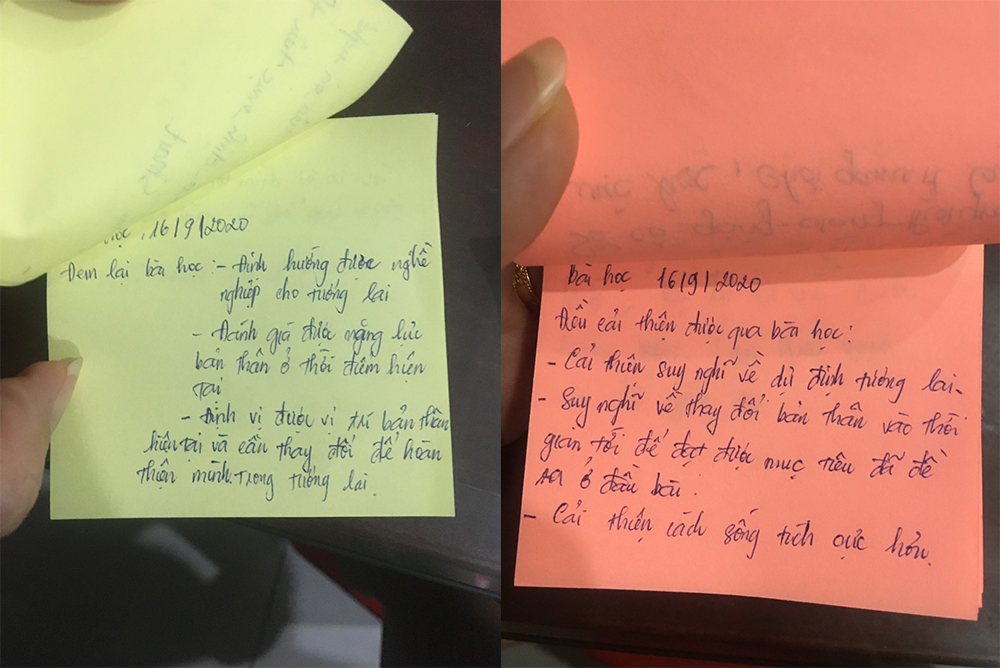 học, 16/9/2020
Đem lại bài học: - Định hướng được nghề
nghiệp cho tương lai
- Đánh giá được năng lực
bản thân ở thời điểm hiện
tại
- Định vị được vị trí bản thân
hiện tại và cần thay đổi để hoàn
thiện mình. Trong tương lai.
Bài học 16/9/2020
Điều cải thiện được qua bài học:
- Cải thiện suy nghĩ về dự định tương lai.
- Suy nghĩ về thay đổi bản thân vào thời
gian tới để đạt được mục tiêu đã đề
ra ở đầu bài.
- Cải thiện cách sống tích cực hơn.